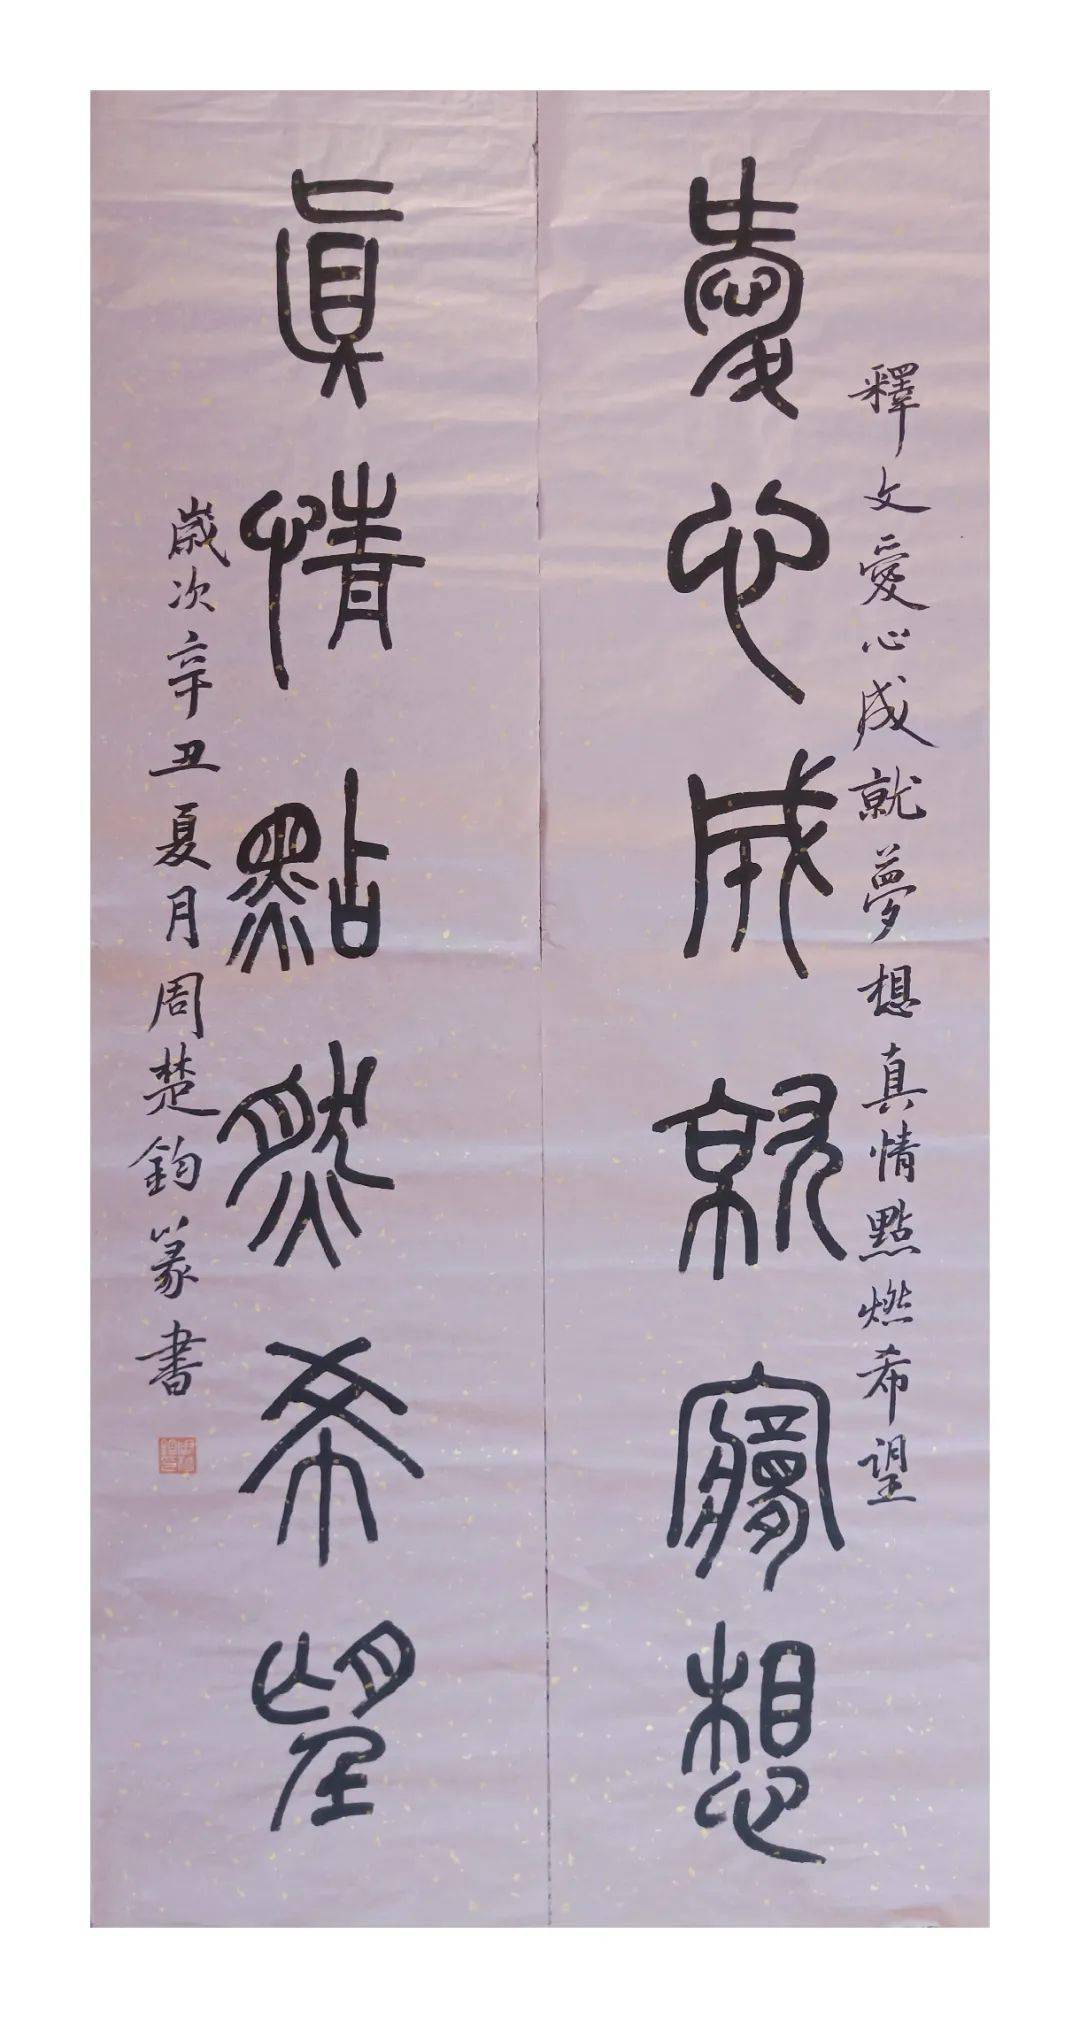 釋文愛心成就夢想真情點燃希望
愛心成就夢想
真情點然希望
歲次辛丑夏月周楚鈞篆書